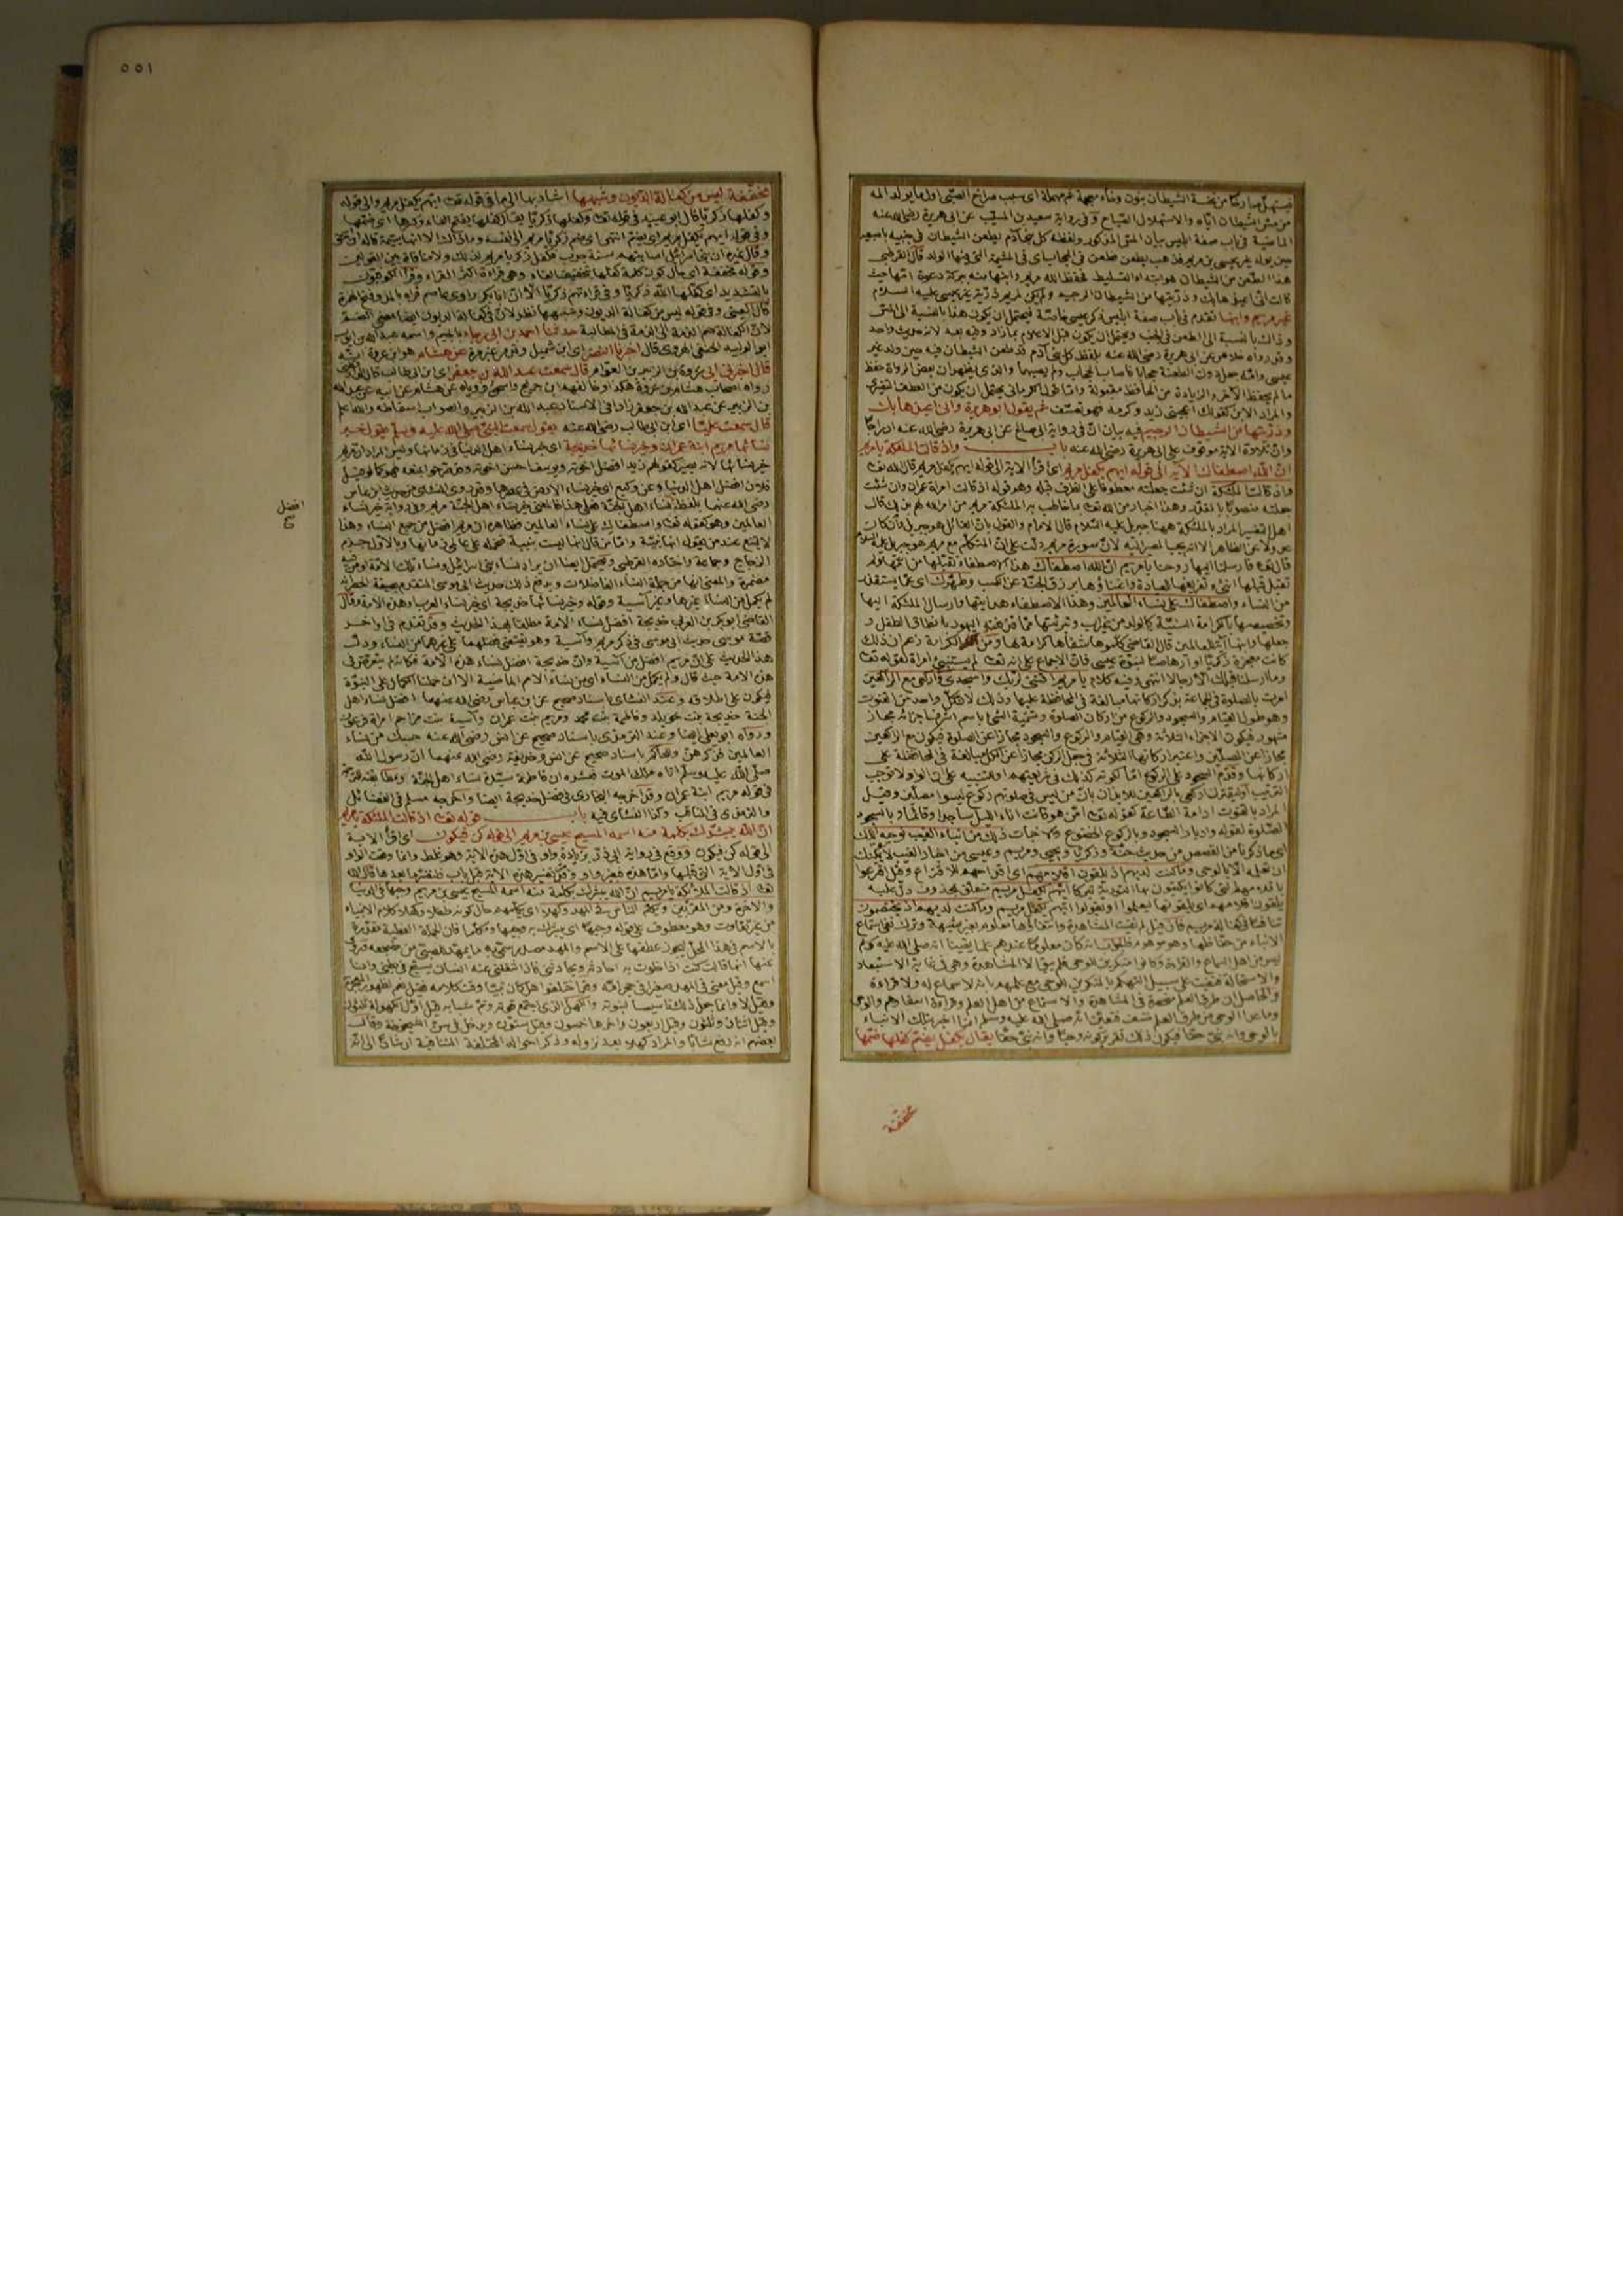 فيستهل صارخا من نخسة الشيطان بنون وخاء معجمة ثم مهملة اى سبب صراخ الصبى اول ما يولد الم
من مس الشيطان اياه والاستهلال الصياح وفى رواية سعيد بن المسيب عن ابى هريرة رضى الله عنه
الماضية فى باب صفة ابليس بيان المس المذكور ولفظه كل بنى آدم يطعن الشيطان فى جنبيه باصبعه
حين يولد غير عيسى بن مريم ذهب يطعن فطعن فى الحجاب اى فى المشيمة التى فيها الولد قال القرطبى
هذا الطعن من الشيطان هو ابتداء التسليط فحفظ الله مريم وابنها منه ببركة دعوة امها حيث
قالت انى اعيذها بك وذريتها من الشيطان الرجيم ولم يكن لمريم ذرية غير عيسى عليه السلام
غير مريم وابنها تقدم فى باب صفة ابليس ذكر عيسى خاصة فيحتمل ان يكون هذا بالنسبة الى المس
وذاك بالنسبة الى الطعن فى الجنب ويحتمل ان يكون قبل الاعلام بما زاد وفيه بعد لانه حديث واحد
وقد رواه خلاس عن ابى هريرة رضى الله عنه بلفظ كل بنى آدم قد طعن الشيطان فيه حين ولد غير
عيسى وامه جعل دون الطعنة حجابا فاصاب الحجاب ولم يصبهما والذى يظهر ان بعض الرواة حفظ
ما لم يحفظ الآخر والزيادة من الحافظ مقبولة
والمراد الابن كقولك اعجبنى زيد وكرمه فهو تعسف ثم يقول ابو هريرة وانى اعيذها بك
وذريتها من الشيطان الرجيم فيه بيان ان فى رواية ابى صالح عن ابى هريرة رضى الله عنه ادراجا
وان تلاوة الآية موقوف على ابى هريرة رضى الله عنه باب واذ قالت الملئكة يا مريم
ان الله اصطفاك الآية الى قوله ايهم يكفل مريم اى اقرأ الآية الى قوله ايهم يكفل مريم قال الله تعه
واذ قالت الملئكة ان شئت جعلته معطوفا على الظرف قبله وهو قوله اذ قالت امرأة عمران وان شئت
جعلته منصوبا بالمقدر وهذا اخبار من الله تعه بما خاطب به الملئكة مريم من امر الله لهم بذلك قال
اهل التفسير المراد بالملئكة ههنا جبريل عليه السلام قال الامام والقول بان القائل هو جبريل وان كان
عدولا عن الظاهر الا انه يجب المصير اليه لان سورة مريم دلت على ان المتكلم مع مريم هو جبريل عليه السلام
قال تعه فارسلنا اليها روحنا يا مريم ان الله اصطفاك هذا الاصطفاء تقبلها من امها ولم
تقبل قبلها انثى وتفريغها للعبادة واغناؤها برزق الجنة عن الكسب وطهرك اى عما يستقذر
من النساء واصطفاك على نساء العالمين وهذا الاصطفاء هدايتها وارسال الملئكة اليها
وتخصيصها بالكرامة السنية كالولد من غير اب وتبرئتها مما قذفته اليهود بانطاق الطفل و
جعلها وابنها آية للعالمين قال القاضى كلموها شفاها كرامة لها ومن انكر الكرامة زعم ان ذلك
كانت معجزة زكريا او ارهاصا لنبوة عيسى فان الاجماع على انه تعه لم يستنبئ امرأة لقوله تعه
وما ارسلنا قبلك الا رجالا انتهى وفيه كلام يا مريم اقنتى لربك واسجدى واركعى مع الراكعين
امرت بالصلوة فى الجماعة بذكر اركانها مبالغة فى المحافظة عليها وذلك لان كل واحد من القنوت
وهو طول القيام والسجود والركوع من اركان الصلوة وتسمية الشئ باسم اشرف اجزائه مجاز
مشهور فيكون الاجزاء الثلاثة وهى القيام والركوع والسجود مجازا عن الصلوة فيكون مع الراكعين
مجازا عن المصلين واعتبار اركانها الثلاثة فى جعل الركن مجازا عن الكل مبالغة فى المحافظة على
اركانها وقدم السجود على الركوع اما لكونه كذلك فى شريعتهم او للتنبيه على ان الواو لا توجب
الترتيب او ليقترن اركعى بالراكعين للايذان بان من ليس فى صلوتهم ركوع ليسوا مصلين وقيل
المراد بالقنوت ادامة الطاعة كقوله تعه امن هو قانت آناء الليل ساجدا وقائما وبالسجود
الصلوة لقوله وادبار السجود وبالركوع الخضوع والاخبات ذلك من انباء الغيب نوحيه اليك
اى ما ذكرنا من القصص من حديث حنة وزكريا ويحيى ومريم وعيسى من اخبار الغيب لا يمكنك
ان تعلمه الا بالوحى وما كنت لديهم اذ يلقون اقلامهم اى اقداحهم للاقتراع وقيل اقترعوا
باقلامهم التى كانوا يكتبون بها التورية تبركا ايهم يكفل مريم متعلق بمحذوف دل عليه
يلقون اقلامهم اى يلقونها ليعلموا او يقولوا ايهم يكفل مريم وما كنت لديهم اذ يختصمون
تنافسا فى كفالة مريم فان قيل لم نفيت المشاهدة وانتفاؤها معلوم بغير شبهة وترك نفى استماع
الانباء من حفاظها وهو موهوم فالجواب انه كان معلوما عندهم علما يقينا انه صلى الله عليه وسلم
ليس من اهل السماع والقراءة وكانوا منكرين للوحى فلم يبق الا المشاهدة وهى فى غاية الاستبعاد
والاستحالة فنفيت على سبيل التهكم بالمنكرين للوحى مع علمهم بانه لا سماع له ولا قراءة
والحاصل ان طرق العلم منحصرة فى المشاهدة والاستماع من اهل العلم وقراءة اسفارهم والوحى
وما عدا الوحى من طرق العلم منتف فتعين انه صلى الله عليه وسلم انما اخبر بتلك الانباء
بالوحى وانه نبى حقا فيكون ذلك تقرير كونه وحيا وانه نبى حقا يقال يكفل يضم كفلها ضمها
مخففة
٥٥١
مخففة ليس من كفالة الديون وشبهها اشار بها الى ما فى قوله تعه ايهم يكفل مريم والى قوله
وكفلها زكريا قال ابو عبيدة فى قوله تعه وكفلها زكريا يقال كفلها بفتح الفاء وكسرها اى ضمها
وفى قوله ايهم يكفل مريم اى يضم انتهى اى ضم زكريا مريم الى نفسه وما ذاك الا انها يتيمة قاله ابن اسحق
وقال غيره ان بنى اسرائيل اصابتهم سنة جدب فكفل زكريا مريم لذلك ولا منافاة بين القولين
وقوله مخففة اى حال كون كلمة كفلها بتخفيف الفاء وهو قراءة اكثر القراء وقرأ الكوفيون
بالتشديد اى كفلها الله زكريا وفى قراءتهم زكريا الا ان ابا بكر راوى عاصم قرأه بالمد وفتح الهمزة
قال العينى وفى قوله ليس من كفالة الديون وشبهها نظر لان فى كفالة الديون ايضا معنى الضم
لان الكفالة ضم الذمة الى الذمة فى المطالبة حدثنا احمد بن ابى رجاء بالجيم واسمه عبد الله بن ايوب
ابو الوليد الحنفى الهروى قال اخبرنا النضر اى ابن شميل وقد مر غير مرة عن هشام هو ابن عروة انه
قال اخبرنى ابى عروة بن الزبير بن العوام قال سمعت عبد الله بن جعفر اى ابن ابى طالب قال الدارقطنى
رواه اصحاب هشام بن عروة هكذا وخالفهم ابن جريج وابن اسحق فروياه عن هشام عن ابيه عن عبد الله
بن الزبير عن عبد الله بن جعفر زاد فى الاسناد عبد الله بن الزبير والصواب اسقاطه والله اعلم
قال سمعت عليا اى ابن ابى طالب رضى الله عنه يقول سمعت النبى صلى الله عليه وسلم يقول خير
نسائها مريم ابنة عمران وخير نسائها خديجة اى خير نساء اهل الدنيا فى زمانها وليس المراد ان مريم
خير نسائها لانه يصير كقولهم زيد افضل اخوته ويوسف احسن اخوته وقد منعه
فلان افضل اهل الدنيا وعن وكيع اى خير نساء الارض فى عصرها وقد روى النسائى من حديث ابن عباس
رضى الله عنهما بلفظ افضل نساء اهل الجنة فعلى هذا فالمعنى خير نساء اهل الجنة مريم وفى رواية خير نساء
العالمين وهو كقوله تعه واصطفاك على نساء العالمين فظاهره ان مريم افضل من جميع النساء وهذا
لا يمتنع عند من يقول انها نبية واما من قال انها ليست بنبية فحمله على عالمى زمانها وبالاول جزم
الزجاج وجماعة واختاره القرطبى ويحتمل ايضا ان يراد نساء بنى اسرائيل ونساء تلك الامة او من فيه
مضمرة والمعنى انها من جملة النساء الفاضلات ويدفع ذلك حديث ابى موسى المتقدم بصيغة الحصر انه
لم يكمل من النساء غيرها وغير آسية وقوله وخير نسائها خديجة اى خير نساء العرب وهذه الامة وقال
القاضى ابو بكر بن العربى خديجة افضل نساء الامة مطلقا بهذا الحديث وقد تقدم فى اواخر
قصة موسى حديث ابى موسى فى ذكر مريم وآسية وهو يقتضى فضلهما على غيرهما من النساء ودل
هذا الحديث على ان مريم افضل من آسية وان خديجة افضل نساء هذه الامة فكأنه لم يتعرض فى
هذه الامة حيث قال ولم يكمل من النساء اى من نساء الامم الماضية الا ان حملنا الكمال على النبوة
فيكون على اطلاقه وعند النسائى باسناد صحيح عن ابن عباس رضى الله عنهما افضل نساء اهل
الجنة خديجة بنت خويلد وفاطمة بنت محمد ومريم بنت عمران وآسية بنت مزاحم امرأة فرعون
ورواه ابو يعلى ايضا وعند الترمذى باسناد صحيح عن انس رضى الله عنه حسبك من نساء
العالمين فذكرهن وللحاكم باسناد صحيح عن انس وحذيفة رضى الله عنهما ان رسول الله
صلى الله عليه وسلم اتاه ملك الموت فبشره ان فاطمة سيدة نساء اهل الجنة ومطابقته للترجمة
فى قوله مريم ابنة عمران وقد اخرجه البخارى فى فضل خديجة ايضا واخرجه مسلم فى الفضائل
والترمذى فى المناقب وكذا النسائى فيه باب قوله تعه اذ قالت الملئكة يا مريم
ان الله يبشرك بكلمة منه اسمه المسيح عيسى بن مريم الى قوله كن فيكون اى اقرأ الآية
الى قوله كن فيكون ووقع فى رواية ابى ذر بزيادة واو فى اول هذه الآية وهو غلط وانما وقعت الواو
فى اول الآية التى قبلها واما هذه فبغير واو وقد تقدم تفسير هذه الآية قبل باب فلنفسرها بعدها قال الله
تعه اذ قالت الملئكة يا مريم ان الله يبشرك بكلمة منه اسمه المسيح عيسى بن مريم وجيها فى الدنيا
والآخرة ومن المقربين ويكلم الناس فى المهد وكهلا اى يكلمهم حال كونه طفلا وكهلا كلام الانبياء
من غير تفاوت وهو معطوف على قوله وجيها اى يبشرك به وجيها ومكلما فان الجملة الفعلية مقدرة
بالاسم فى هذا المحل فيجوز عطفها على الاسم والمهد مصدر سمى به ما يمهد للصبى من مضجعه
عنها انها قالت كنت اذا خلوت به احادثه ويحادثنى فاذا شغلنى عنه انسان يسبح فى بطنى وانا
اسمع وقيل معنى فى المهد صغيرا فى حجر امه وقد اختلفوا هل كان نبيا وقت كلامه فقيل نعم لظهور المعجزة
وقيل لا وانما جعل ذلك تأسيسا لنبوته والكهل الذى اجتمع قوته وتم شبابه قيل اول الكهولة ثلثون
وقيل اثنان وثلثون وقيل اربعون وآخرها خمسون وقيل ستون ويدخل فى سن الشيخوخة وقال
بعضهم انه رفع شابا والمراد كهلا بعد نزوله وذكر احواله المختلفة المتنافية ارشادا الى انه
افضل
صح